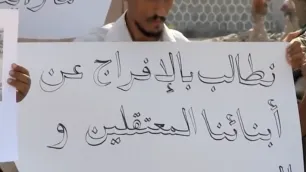 نطالب بالإفراج عن
أبنائنا المعتقلين و